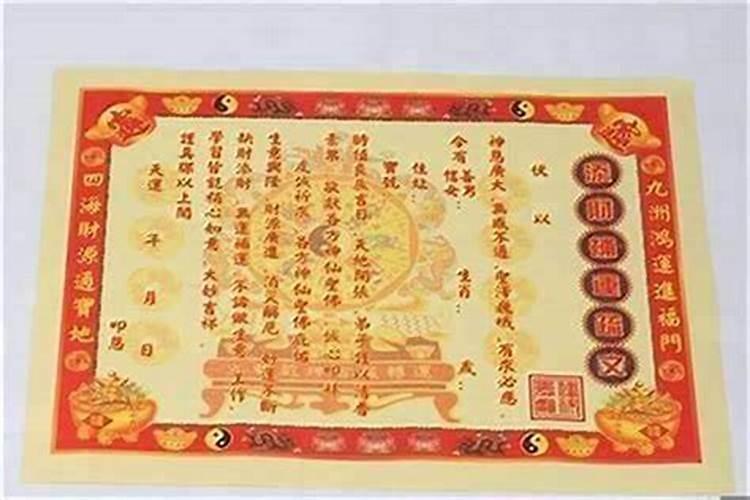 九洲鴻運進福門
添財補運保文
伏以
神恩廣大 無感不通 聖澤巍峨 有求必應
今有善男信女： 生肖： 歲：
住址：
寶號
時值良辰吉日 天地開張 弟子謹以清香
素果 敬獻各方神仙聖佛 誠心叩拜
虔誠祈求 各方神仙聖佛庇佑
生意興隆 財源廣進 消災解厄 好運不斷
缺財添財 無運補運 不論做生意 工作
學習皆能順心如意 大妙吉祥
謹具牒以上聞
天運 年 月 日
叩恩
四海財源通寶地